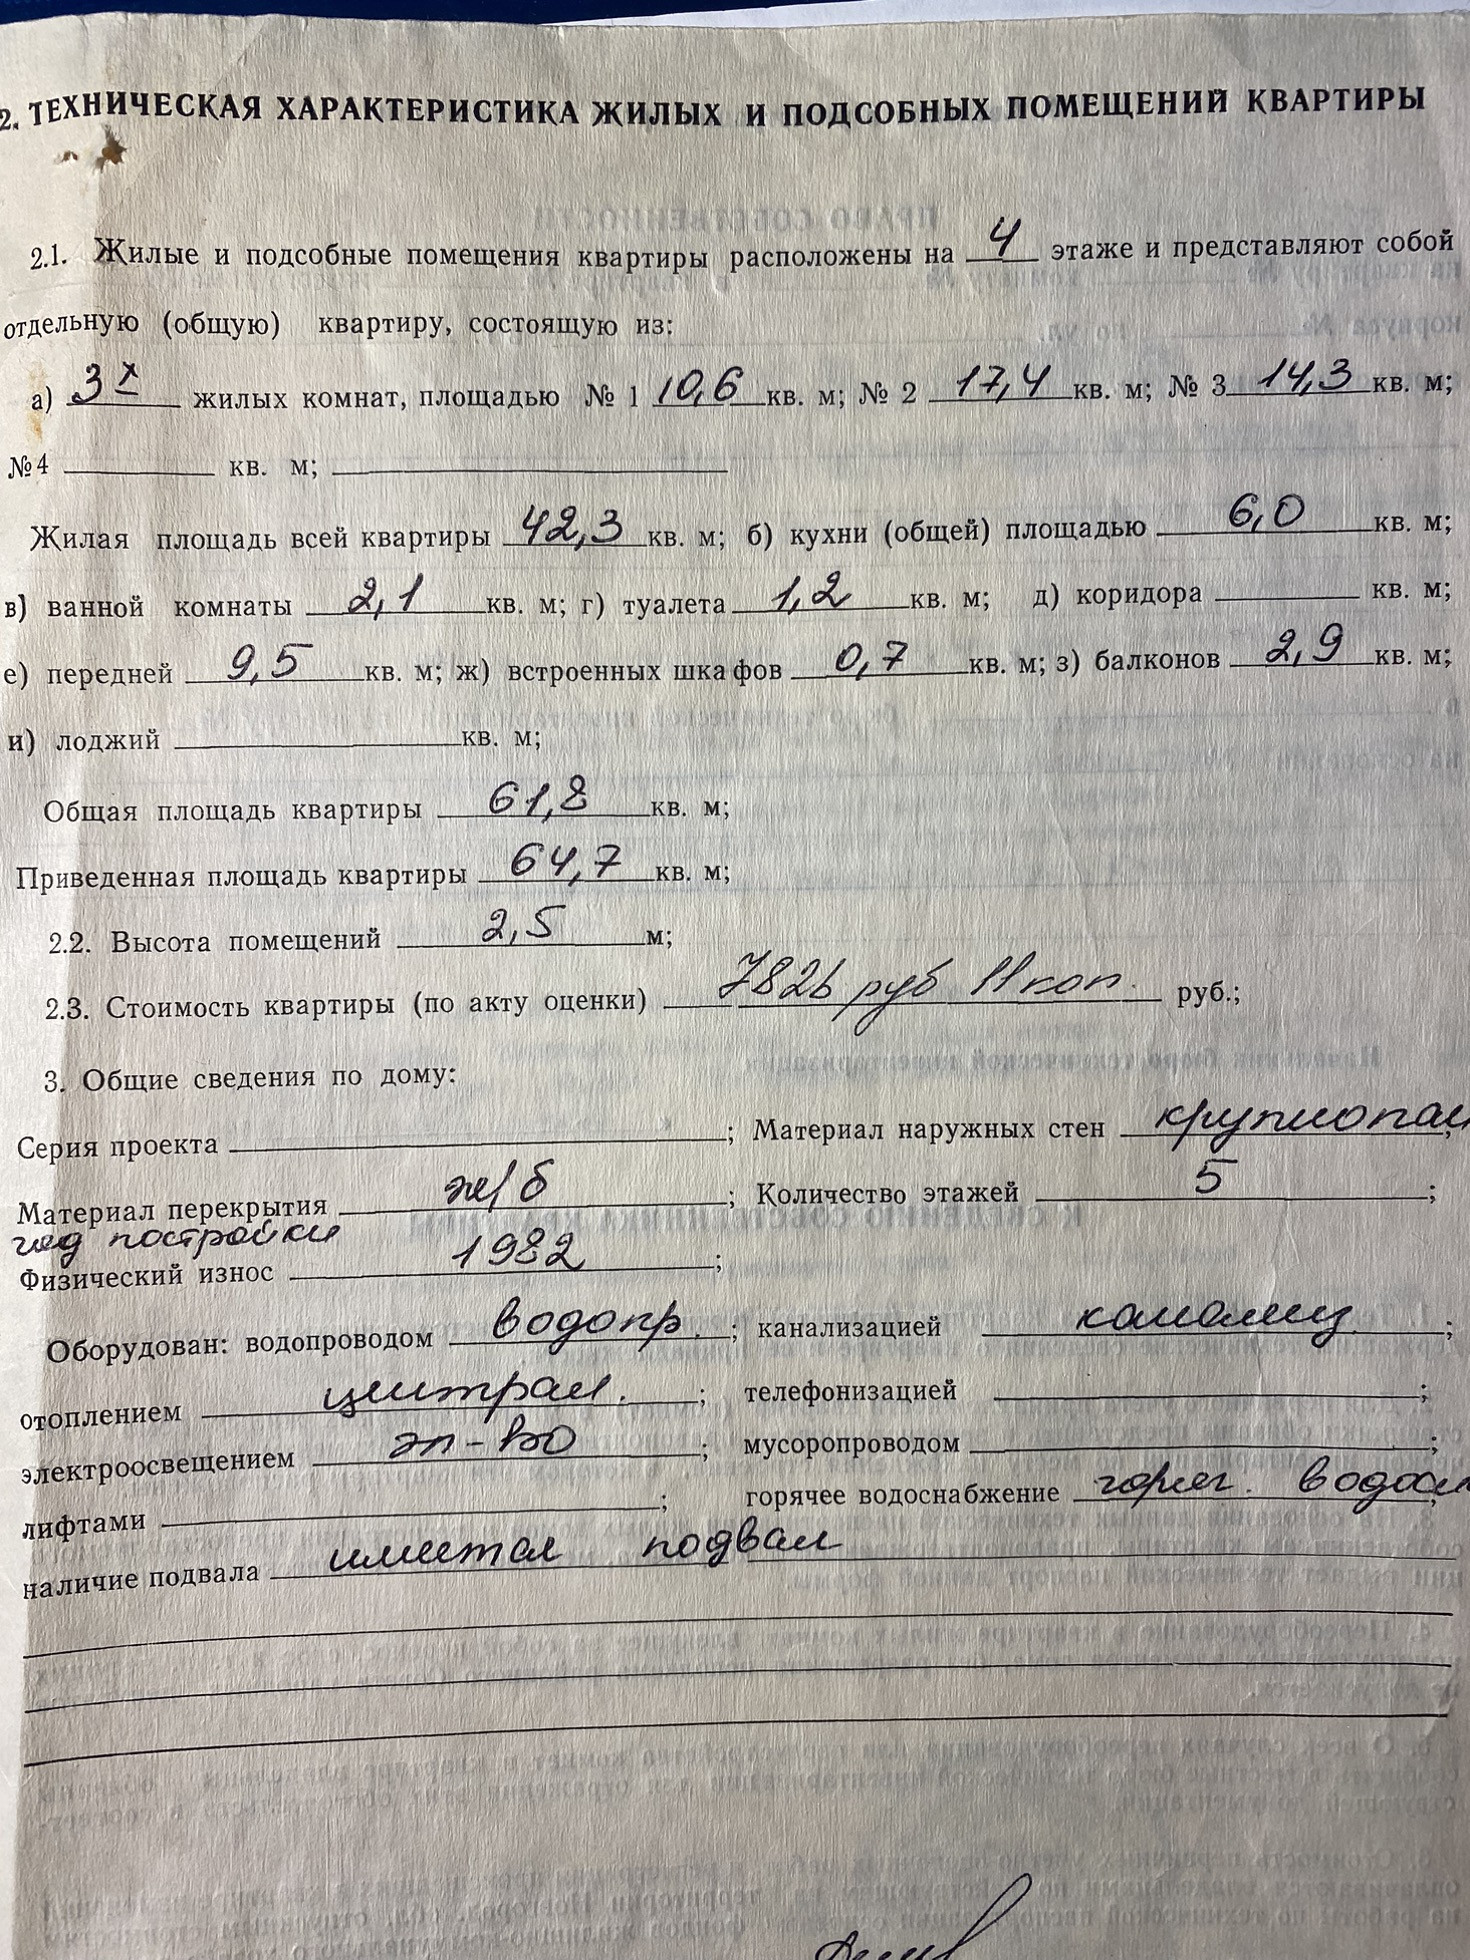 2. ТЕХНИЧЕСКАЯ ХАРАКТЕРИСТИКА ЖИЛЫХ И ПОДСОБНЫХ ПОМЕЩЕНИЙ КВАРТИРЫ
2.1. Жилые и подсобные помещения квартиры расположены на 4 этаже и представляют собой
отдельную (общую) квартиру, состоящую из:
а) 3х жилых комнат, площадью № 1 10,6 кв. м; № 2 17,4 кв. м; № 3 14,3 кв. м;
№ 4 кв. м;
Жилая площадь всей квартиры 42,3 кв. м; б) кухни (общей) площадью 6,0 кв. м;
в) ванной комнаты 2,1 кв. м; г) туалета 1,2 кв. м; д) коридора кв. м;
е) передней 9,5 кв. м; ж) встроенных шкафов 0,7 кв. м; з) балконов 2,9 кв. м;
и) лоджий кв. м;
Общая площадь квартиры 61,8 кв. м;
Приведенная площадь квартиры 64,7 кв. м;
2.2. Высота помещений 2,5 м;
2.3. Стоимость квартиры (по акту оценки) 7826 руб 11 коп. руб.;
3. Общие сведения по дому:
Серия проекта ; Материал наружных стен крупнопан
Материал перекрытия ж/б ; Количество этажей 5 ;
год постройки
Физический износ 1982 ;
Оборудован: водопроводом водопр. ; канализацией канализ. ;
отоплением централ. ; телефонизацией ;
электроосвещением эл-во ; мусоропроводом ;
лифтами ; горячее водоснабжение горяч. водосн
наличие подвала имеется подвал